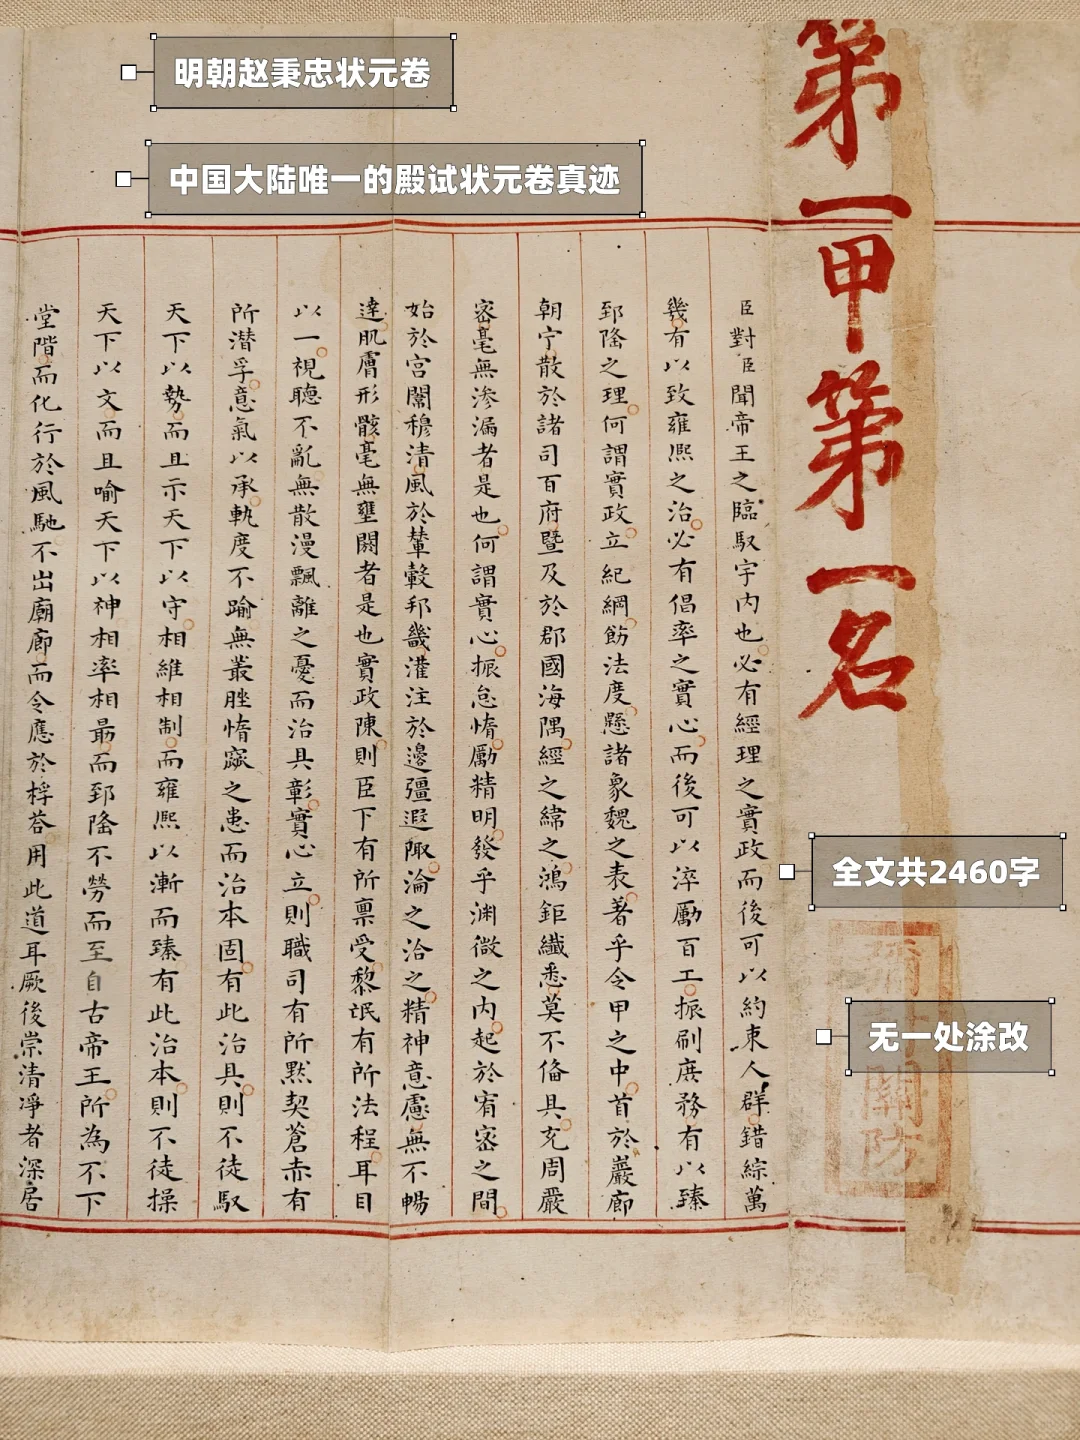 明朝赵秉忠状元卷
中国大陆唯一的殿试状元卷真迹
第一甲第一名
全文共2460字
无一处涂改
關防
臣對臣聞帝王之臨馭宇内也必有經理之實政而後可以約束人群錯綜萬
幾有以致雍熙之治必有倡率之實心而後可以淬勵百工振刷庶務有以臻
郅隆之理何謂實政立紀綱飭法度懸諸象魏之表著乎令甲之中首於巖廊
朝宁散於諸司百府暨及於郡國海隅經之緯之鴻鉅纖悉莫不俻具充周嚴
宻毫無滲漏者是也何謂實心振怠惰勵精明發乎渊微之内起於宥宻之間
始於宫闈穆清風於輦轂邦畿灌注於邊疆遐陬淪之洽之精神意慮無不暢
達肌膚形骸毫無壅閼者是也實政陳則臣下有所禀受黎氓有所法程耳目
以一視聽不亂無散漫飄離之憂而治具彰實心立則職司有所默契蒼赤有
所潜孚意氣以承軌度不踰無叢脞惰窳之患而治本固有此治具則不徒馭
天下以勢而且示天下以守相維相制而雍熙以漸而臻有此治本則不徒操
天下以文而且喻天下以神相率相最而郅隆不勞而至自古帝王所為不下
堂階而化行於風馳不出廟廊而令應於桴荅用此道耳厥後崇清凈者深居